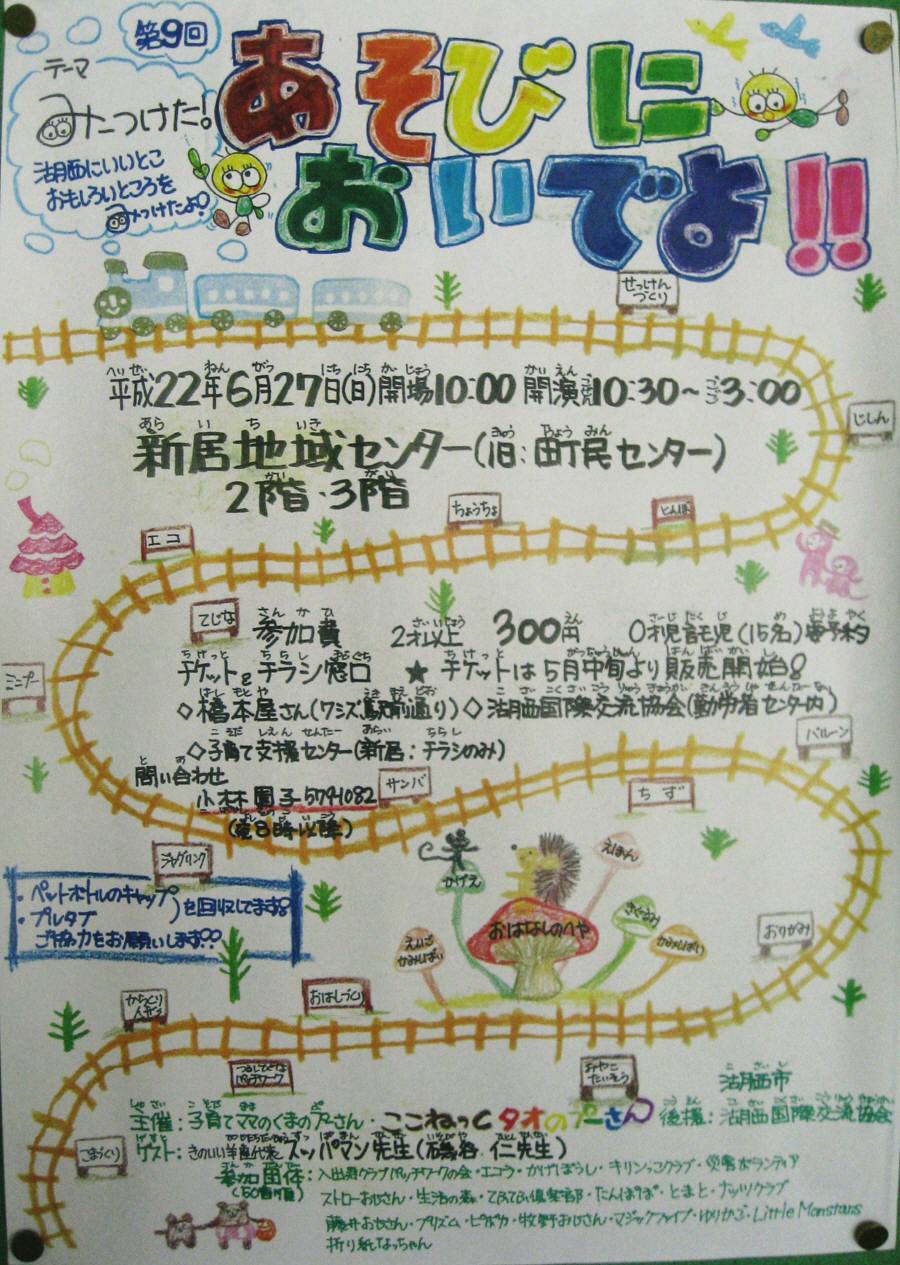 第9回
あそびに
おいでよ!!
テーマ
みたつけた!
湖西にいいとこ
おもしろいところを
みつけたよ!
せっけん
づくり
平成22年6月27日(日)開場10:00 開演10:30〜3:00
じしん
新居地域センター(旧:町民センター)
2階・3階
ちょうちょ
とんぼ
エコ
てじな
参加費 2才以上 300円 0才児託児(15名)要予約
チケット&チラシ窓口 ★チケットは5月中旬より販売開始!
ミニプー
◇橋本屋さん(ワシズ駅前通り)◇湖西国際交流協会(勤労者センター内)
◇子育て支援センター(新居:チラシのみ)
バルーン
問い合わせ
小林園子5741082
(夜8時以降)
サンバ
ちず
ジャグリング
・ペットボトルのキャップ
・プルタブ
を回収してます!
ご協力をお願いします!!
かげえ
えほん
おはなしのへや
えいご
かみしばい
かみしばい
おりがみ
からくり
人形
おはしづくり
パッチワーク
たいそう
こまづくり
湖西市
主催:子育てママのくまのプーさん・ここねっと タオのプーさん 後援:湖西国際交流協会
ゲスト:きのいい羊達代表 ズッパマン先生(磯谷 仁先生)
参加団体:入出君クラブパッチワークの会・エコラ・かげぼうし・キリンっこクラブ・災害ボランティア
(50音順)
ストローおじさん・生活の森・てくてく倶楽部・たんぽぽ・とまと・ナッツクラブ
藤井おやさん・プリズム・ピポカ・牧野おじさん・マジックファイブ・ゆりかご・Little Monstars
折り紙なっちゃん